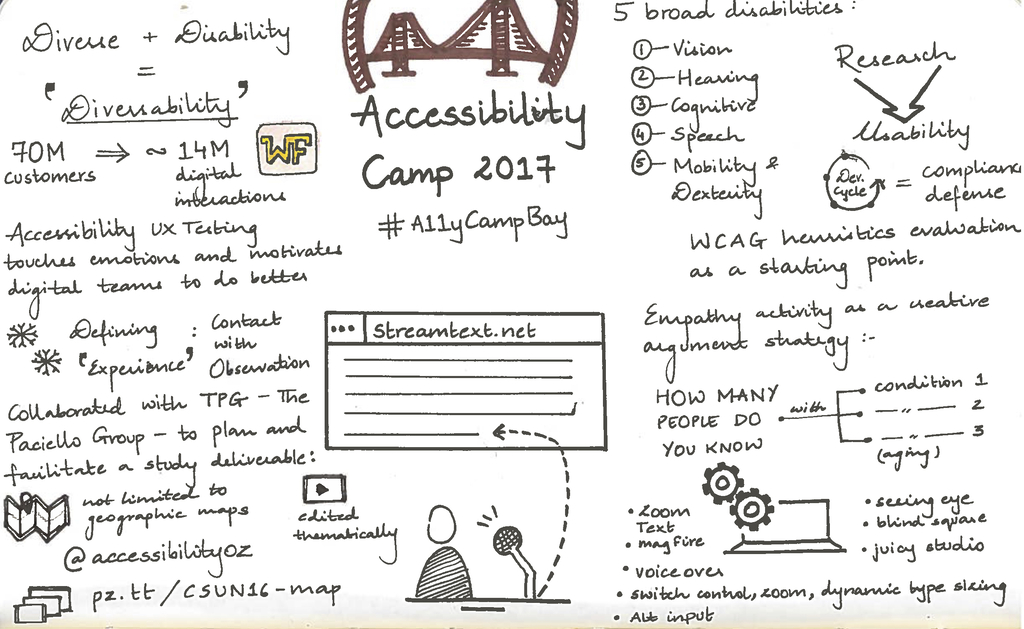 Diverse + Disability
=
"Diversability"
70M ⇒ ~ 14M
customers digital
interactions
WF
Accessibility UX Testing
touches emotions and motivates
digital teams to do better
Defining : Contact
with
"Experience" Observation
Collaborated with TPG - The
Paciello Group - to plan and
facilitate a study deliverable:
not limited to
geographic maps
@accessibilityoz
pz.tt/CSUN16-map
Accessibility
Camp 2017
#A11yCampBay
streamtext.net
edited
thematically
5 broad disabilities:
1 - Vision
2 - Hearing
3 - Cognitive
4 - Speech
5 - Mobility &
Dexterity
Research
Usability
Dev. = compliance
Cycle defense
WCAG heuristics evaluation
as a starting point.
Empathy activity as a creative
argument strategy :-
HOW MANY
PEOPLE DO
YOU KNOW
with
condition 1
— " — 2
— " — 3
(aging)
• Zoom
Text
• magfire
• voiceover
• switch control, zoom, dynamic type sizing
• Alt input
• seeing eye
• blind square
• juicy studio